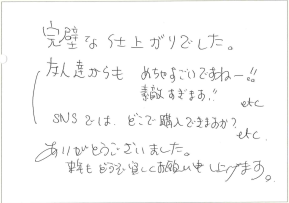 完璧な仕上がりでした。
友人達からも めちゃすごいですねー!!
素敵すぎます!!
etc
SNSでは、どこで購入できますか?
etc.
ありがとうございました。
来年もどうぞ宜しくお願い申し上げます。